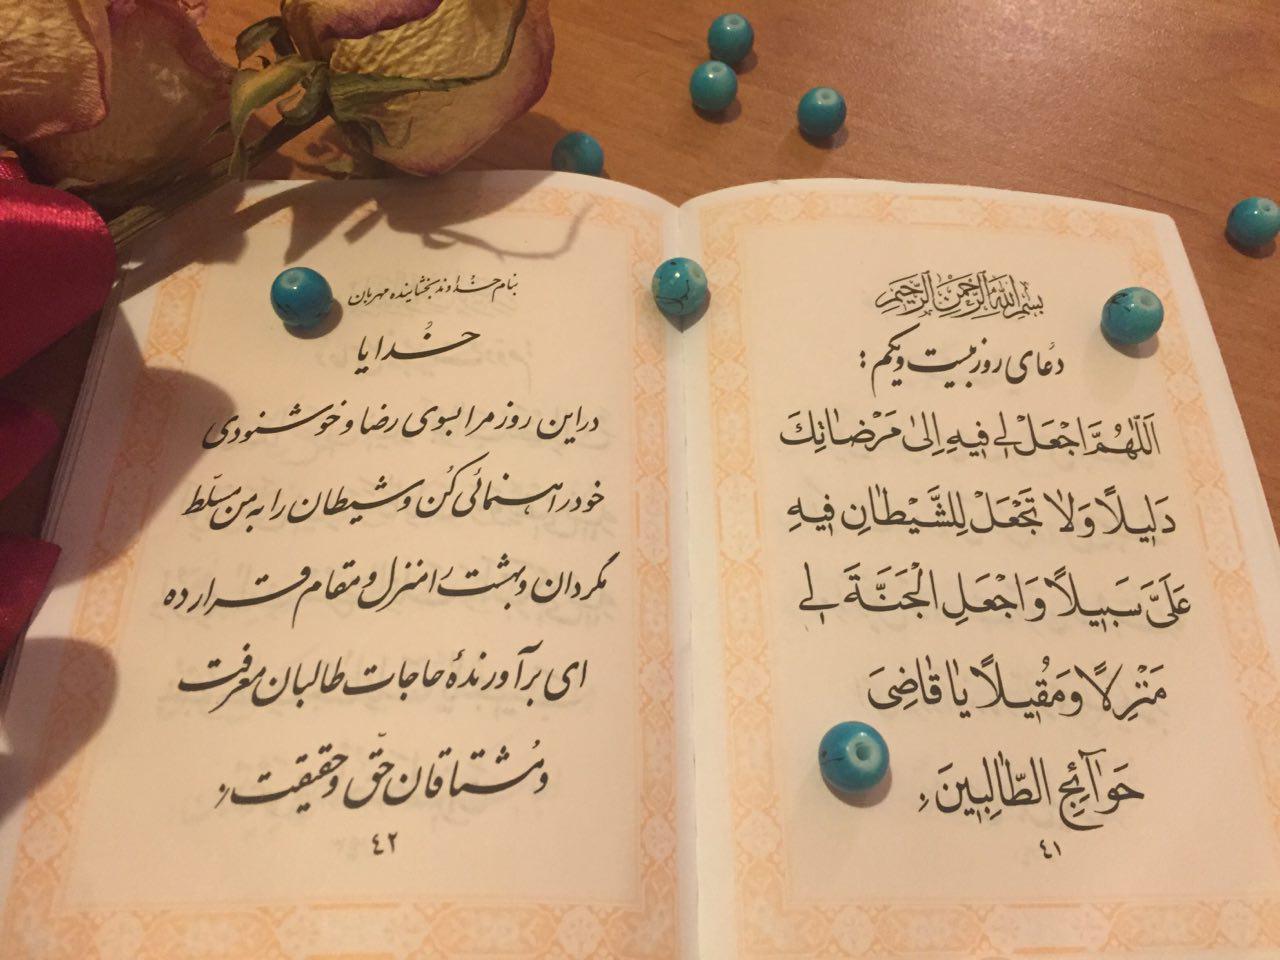 بِسْمِ اللهِ الرَّحْمٰنِ الرَّحِیْمِ
دُعای روز بیست و یکم :
اَللّٰهُمَّ اجْعَلْ لي فیٖهِ اِلیٰ مَرْضاتِكَ
دَلیٖلًا وَلا تَجْعَلْ لِلشَّیْطٰانِ فیٖهِ
عَلَیَّ سَبیٖلًا وَاجْعَلِ الْجَنَّةَ لي
مَنْزِلًا وَمَقیٖلًا یٰا قٰاضِیَ
حَوٰآئِجِ الطّٰالِبیٖنَ .
٤١
بنام خداوند بخشاینده مهربان
خُدایا
در این روز مرا بسوی رضا و خوشنودی
خود راهنمائی کُن و شیطان را به من مسلّط
مگردان و بهشت را منزل و مقام قرار ده
ای برآورندهٔ حاجات طالبان معرفت
و مُشتاقان حّق و حقیقت .
٤٢